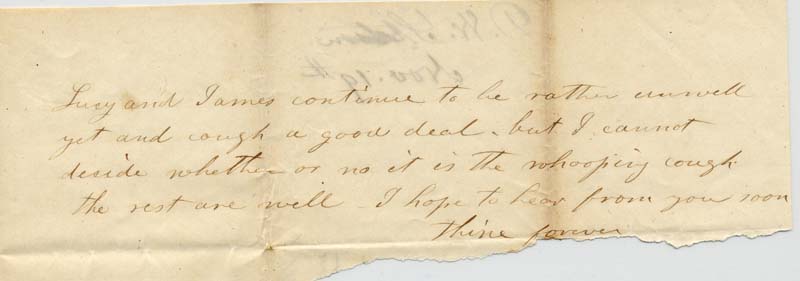 Nov. 19th
Lucy and James continue to be rather unwell
yet and cough a good deal. but I cannot
decide whether or no it is the whooping cough
the rest are well I hope to hear from you soon
thine forever